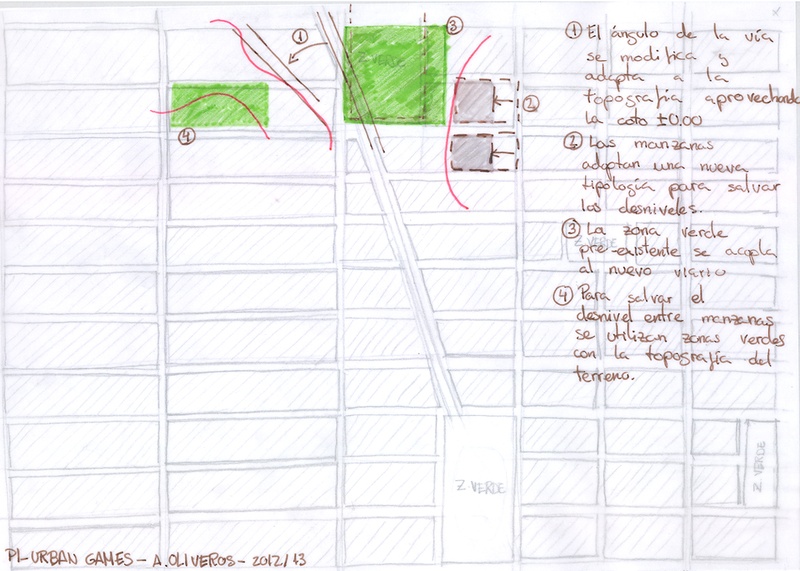 ① El ángulo de la vía
se modifica y
adapta a la
topografía aprovechando
la cota ±0.00
② Las manzanas
adoptan una nueva
tipología para salvar
los desniveles.
③ La zona verde
pre-existente se acopla
al nuevo viario
④ Para salvar el
desnivel entre manzanas
se utilizan zonas verdes
con la topografía del
terreno.
①
③
②
④
Z VERDE
Z VERDE
Z VERDE
Z VERDE
P1-URBAN GAMES - A.OLIVEROS - 2012/13